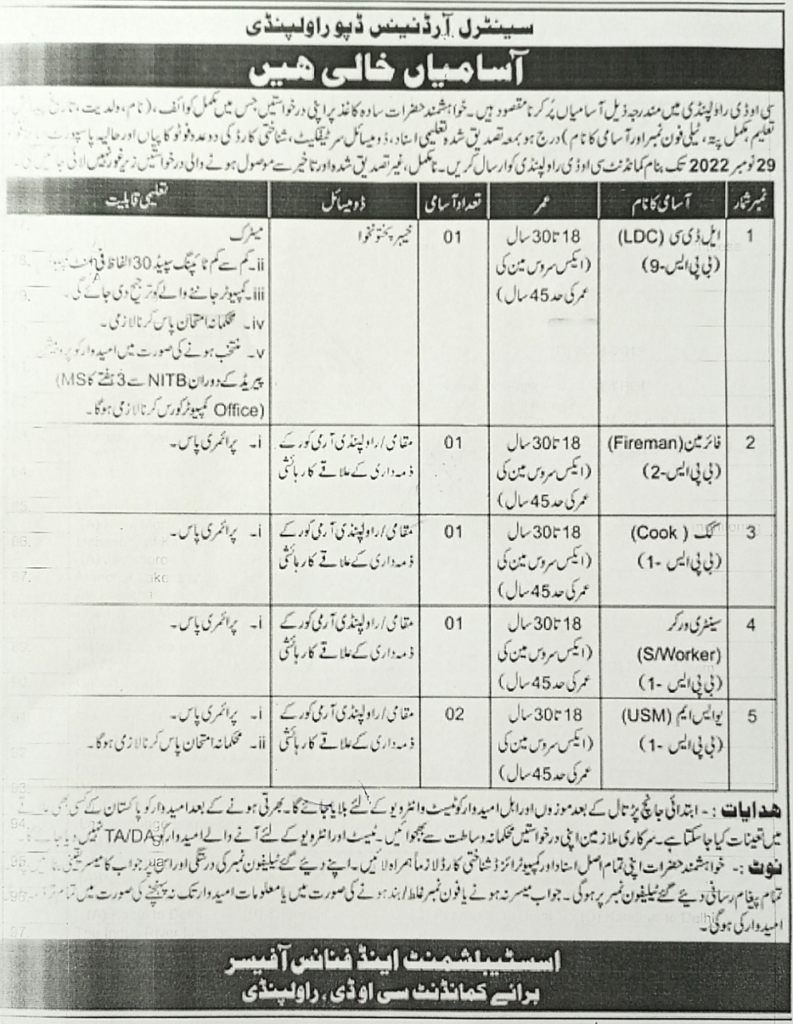 سینٹرل آرڈنینس ڈپو راولپنڈی
آسامیاں خالی ہیں
سی او ڈی راولپنڈی میں مندرجہ ذیل آسامیاں پُر کرنا مقصود ہیں۔ خواہشمند حضرات سادہ کاغذ پر اپنی درخواستیں جس میں مکمل کوائف، (نام، ولدیت، تاریخ
تعلیم، مکمل پتہ، ٹیلی فون نمبر اور آسامی کا نام) درج ہو بمعہ تصدیق شدہ تعلیمی اسناد، ڈومیسائل سرٹیفکیٹ، شناختی کارڈ کی دو عدد فوٹو کاپیاں اور حالیہ پاسپورٹ
29 نومبر 2022 تک بنام کمانڈنٹ سی او ڈی راولپنڈی کو ارسال کریں۔ نامکمل، غیر تصدیق شدہ اور تاخیر سے موصول ہونے والی درخواستیں زیر غور نہیں لائی جائیں گی۔
نمبر شمار آسامی کا نام عمر تعداد آسامی ڈومیسائل تعلیمی قابلیت
1 ایل ڈی سی (LDC) 18 تا 30 سال 01 خیبر پختونخوا میٹرک
(بی پی ایس-9) (ایکس سروس مین کی ii۔ کم سے کم ٹائپنگ سپیڈ 30 الفاظ فی منٹ
عمر کی حد 45 سال) iii۔ کمپیوٹر جاننے والے کو ترجیح دی جائے گی۔
iv۔ محکمانہ امتحان پاس کرنا لازمی۔
v۔ منتخب ہونے کی صورت میں امیدوار کو پروبیشن
پیریڈ کے دوران NITB سے 3 ہفتے کا MS)
(Office کمپیوٹر کورس کرنا لازمی ہوگا۔
2 فائر مین (Fireman) 18 تا 30 سال 01 مقامی/راولپنڈی آرمی کور کے i۔ پرائمری پاس۔
(بی پی ایس-2) (ایکس سروس مین کی ذمہ داری کے علاقے کا رہائشی
عمر کی حد 45 سال)
3 کک (Cook) 18 تا 30 سال 01 مقامی/راولپنڈی آرمی کور کے i۔ پرائمری پاس۔
(بی پی ایس -1) (ایکس سروس مین کی ذمہ داری کے علاقے کا رہائشی
عمر کی حد 45 سال)
4 سینٹری ورکر 18 تا 30 سال 01 مقامی/راولپنڈی آرمی کور کے i۔ پرائمری پاس۔
(S/Worker) (ایکس سروس مین کی ذمہ داری کے علاقے کا رہائشی
(بی پی ایس -1) عمر کی حد 45 سال)
5 یو ایس ایم (USM) 18 تا 30 سال 02 مقامی/راولپنڈی آرمی کور کے i۔ پرائمری پاس۔
(بی پی ایس -1) (ایکس سروس مین کی ذمہ داری کے علاقے کا رہائشی ii۔ محکمانہ امتحان پاس کرنا لازمی ہوگا۔
عمر کی حد 45 سال)
ہدایات :- ابتدائی جانچ پڑتال کے بعد موزوں اور اہل امیدوار کو ٹیسٹ و انٹرویو کے لئے بلایا جائے گا۔ بھرتی ہونے کے بعد امیدوار کو پاکستان کے کسی بھی
میں تعینات کیا جا سکتا ہے۔ سرکاری ملازمین اپنی درخواستیں محکمانہ وساطت سے بھجوائیں۔ ٹیسٹ اور انٹرویو کے لئے آنے والے امیدوار کو TA/DA نہیں دیا جائے گا۔
نوٹ :- خواہشمند حضرات اپنی تمام اصل اسناد اور کمپیوٹرائزڈ شناختی کارڈ لازماً ہمراہ لائیں۔ اپنے دیئے گئے ٹیلیفون نمبر کی درستگی اور اس پر جواب کا میسر یقینی بنائیں
تمام پیغام رسانی دیئے گئے ٹیلیفون نمبر پر ہوگی۔ جواب میسر نہ ہونے یا فون نمبر غلط/بند ہونے کی صورت میں یا معلومات امیدوار تک نہ پہنچنے کی صورت میں تمام تر
امیدوار کی ہوگی۔
اسسٹیبلشمنٹ اینڈ فنانس آفیسر
برائے کمانڈنٹ سی او ڈی، راولپنڈی